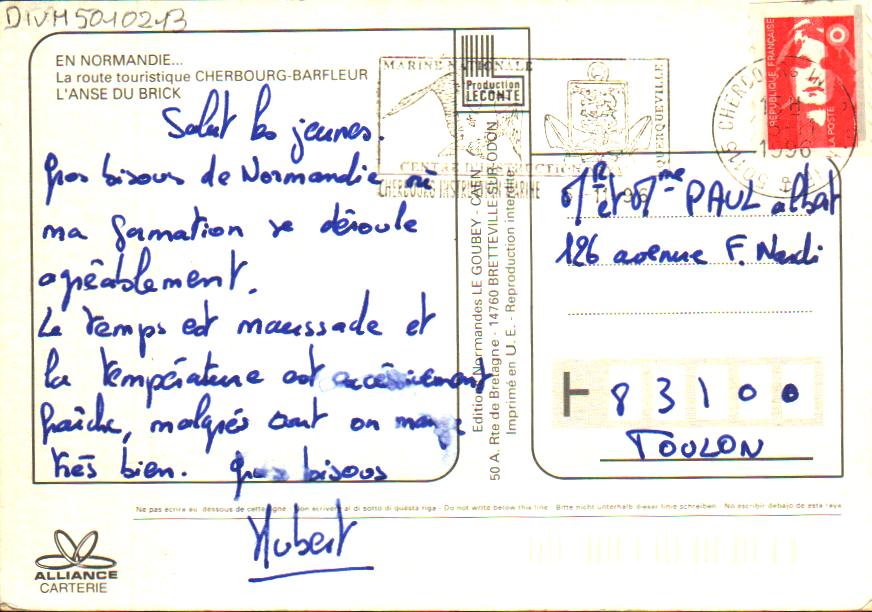 DIVM5010213
EN NORMANDIE...
La route touristique CHERBOURG-BARFLEUR
L'ANSE DU BRICK
Production
LECONTE
MARINE NATIONALE
CENTRE INSTRUCTION
CHERBOURG INSTRUCTION MARINE
QUERQUEVILLE
-11-96
50115 CHERBOURG
1996
REPUBLIQUE FRANÇAISE
LA POSTE
Salut les jeunes.
gros bisous de Normandie où
ma formation se déroule
agréablement.
Le temps est maussade et
la température est excessivement
fraîche, malgrés tout on mange
très bien. gros bisous
Hubert
Editions Normandes LE GOUBEY - CAEN
50 A. Rte de Bretagne - 14760 BRETTEVILLE-SUR-ODON
Imprimé en U. E. - Reproduction interdite
Mr et Mme PAUL albat
126 avenue F. Nardi
83100
TOULON
Ne pas écrire au dessous de cette ligne - Non scrivere al di sotto di questa riga - Do not write below this line - Bitte nicht unterhalb dieser linie schreiben - No escribir debajo de esta raya
ALLIANCE
CARTERIE